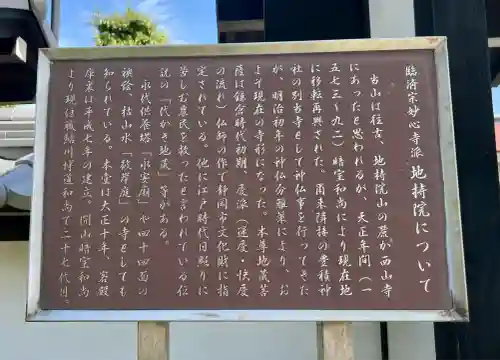 臨済宗妙心寺派 地持院について
当山は往古、地持院山の麓が西山寺
にあったと思われるが、天正年間(一
五七三~九二)暗室和尚により現在地
に移転再興された。爾来隣接の豊積神
社の別当寺として神仏事を行ってきた
が、明治初年の神仏分離策により、お
よそ現在の寺形になった。本尊地蔵菩
薩は鎌倉時代初期、慶派(運慶・快慶
の流れ)仏師の作で静岡市文化財に指
定されている。他に江戸時代旧堀りに
苦しむ農民を救ったと言われている伝
説の「代かき地蔵」等がある。
永代供養塔「永客廟」や四十四面の
襖絵、枯山水「敲岸庭」の寺としても
知られている。本堂は大正十年、客殿
庫裏は平成七年の建立。開山暗室和尚
より現住職鮎川博道和尚で二十七代目。